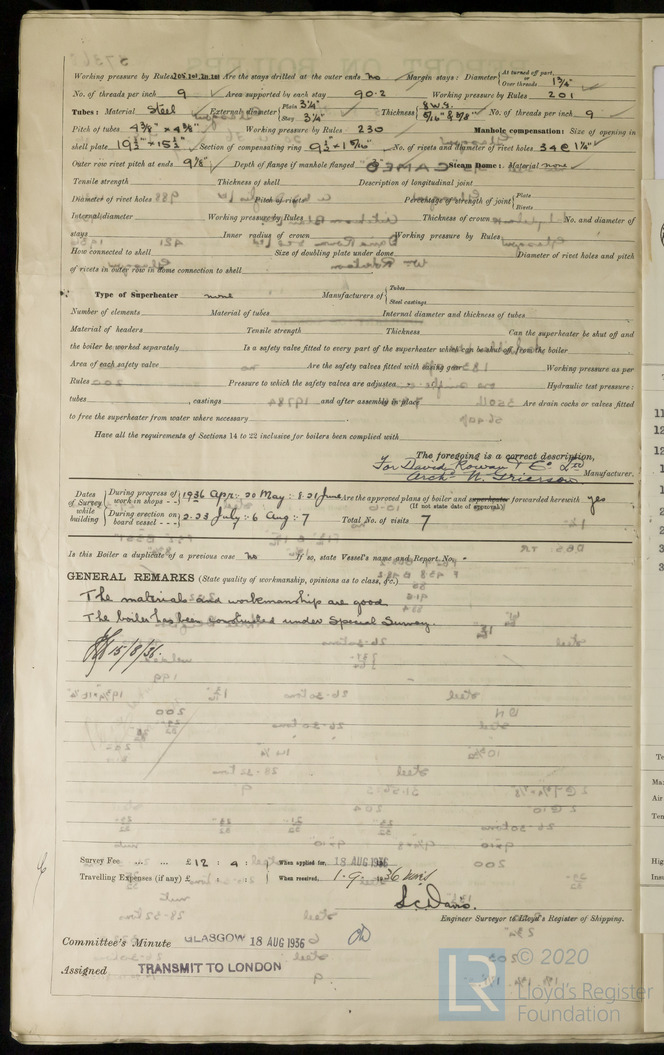 Working pressure by Rules Are the stays drilled at the outer ends no Margin stays: Diameter { At turned off part, or Over threads 1 3/4"
No. of threads per inch 9 Area supported by each stay 90.2 Working pressure by Rules 201
Tubes: Material Steel External diameter { Plain 3 1/4" Stay 3 1/4" Thickness { 8 W.G. 5/16" & 3/8" No. of threads per inch 9
Pitch of tubes 4 3/8" x 4 3/8" Working pressure by Rules 230 Manhole compensation: Size of opening in
shell plate 19 1/2" x 15 1/2" Section of compensating ring No. of rivets and diameter of rivet holes 34 @ 1 1/4"
Outer row rivet pitch at ends 9 1/8" Depth of flange if manhole flanged Steam Dome: Material none
Tensile strength Thickness of shell Description of longitudinal joint
Diameter of rivet holes Pitch of rivets Percentage of strength of joint { Plate Rivets
Internal diameter Working pressure by Rules Thickness of crown No. and diameter of
stays Inner radius of crown Working pressure by Rules
How connected to shell Size of doubling plate under dome Diameter of rivet holes and pitch
of rivets in outer row in dome connection to shell
Type of Superheater none Manufacturers of { Tubes Steel castings
Number of elements Material of tubes Internal diameter and thickness of tubes
Material of headers Tensile strength Thickness Can the superheater be shut off and
the boiler be worked separately Is a safety valve fitted to every part of the superheater which can be shut off from the boiler
Area of each safety valve Are the safety valves fitted with easing gear Working pressure as per
Rules Pressure to which the safety valves are adjusted Hydraulic test pressure:
tubes , castings and after assembly in place Are drain cocks or valves fitted
to free the superheater from water where necessary
Have all the requirements of Sections 14 to 22 inclusive for boilers been complied with
The foregoing is a correct description,
For David Rowan & Co Ltd
Archd W. Grierson Manufacturer.
Dates of Survey while building { During progress of work in shops - - 1936 Apr: 20 May: 8. 21 June Are the approved plans of boiler and superheater forwarded herewith yes
(If not state date of approval)
During erection on board vessel - - - 2. 23 July: 6 Aug: 7 Total No. of visits 7
Is this Boiler a duplicate of a previous case no If so, state Vessel's name and Report No. -
GENERAL REMARKS (State quality of workmanship, opinions as to class, &c.)
The materials and workmanship are good.
The boiler has been constructed under Special Survey.
15/8/36.
Survey Fee ... ... £12 : 4 : When applied for, 18 AUG 1936
Travelling Expenses (if any) £ : : When received, 1. 9. 1936
S. C. Davis.
Engineer Surveyor to Lloyd's Register of Shipping.
Committee's Minute GLASGOW 18 AUG 1936
Assigned TRANSMIT TO LONDON
LR © 2020
Lloyd's Register
Foundation